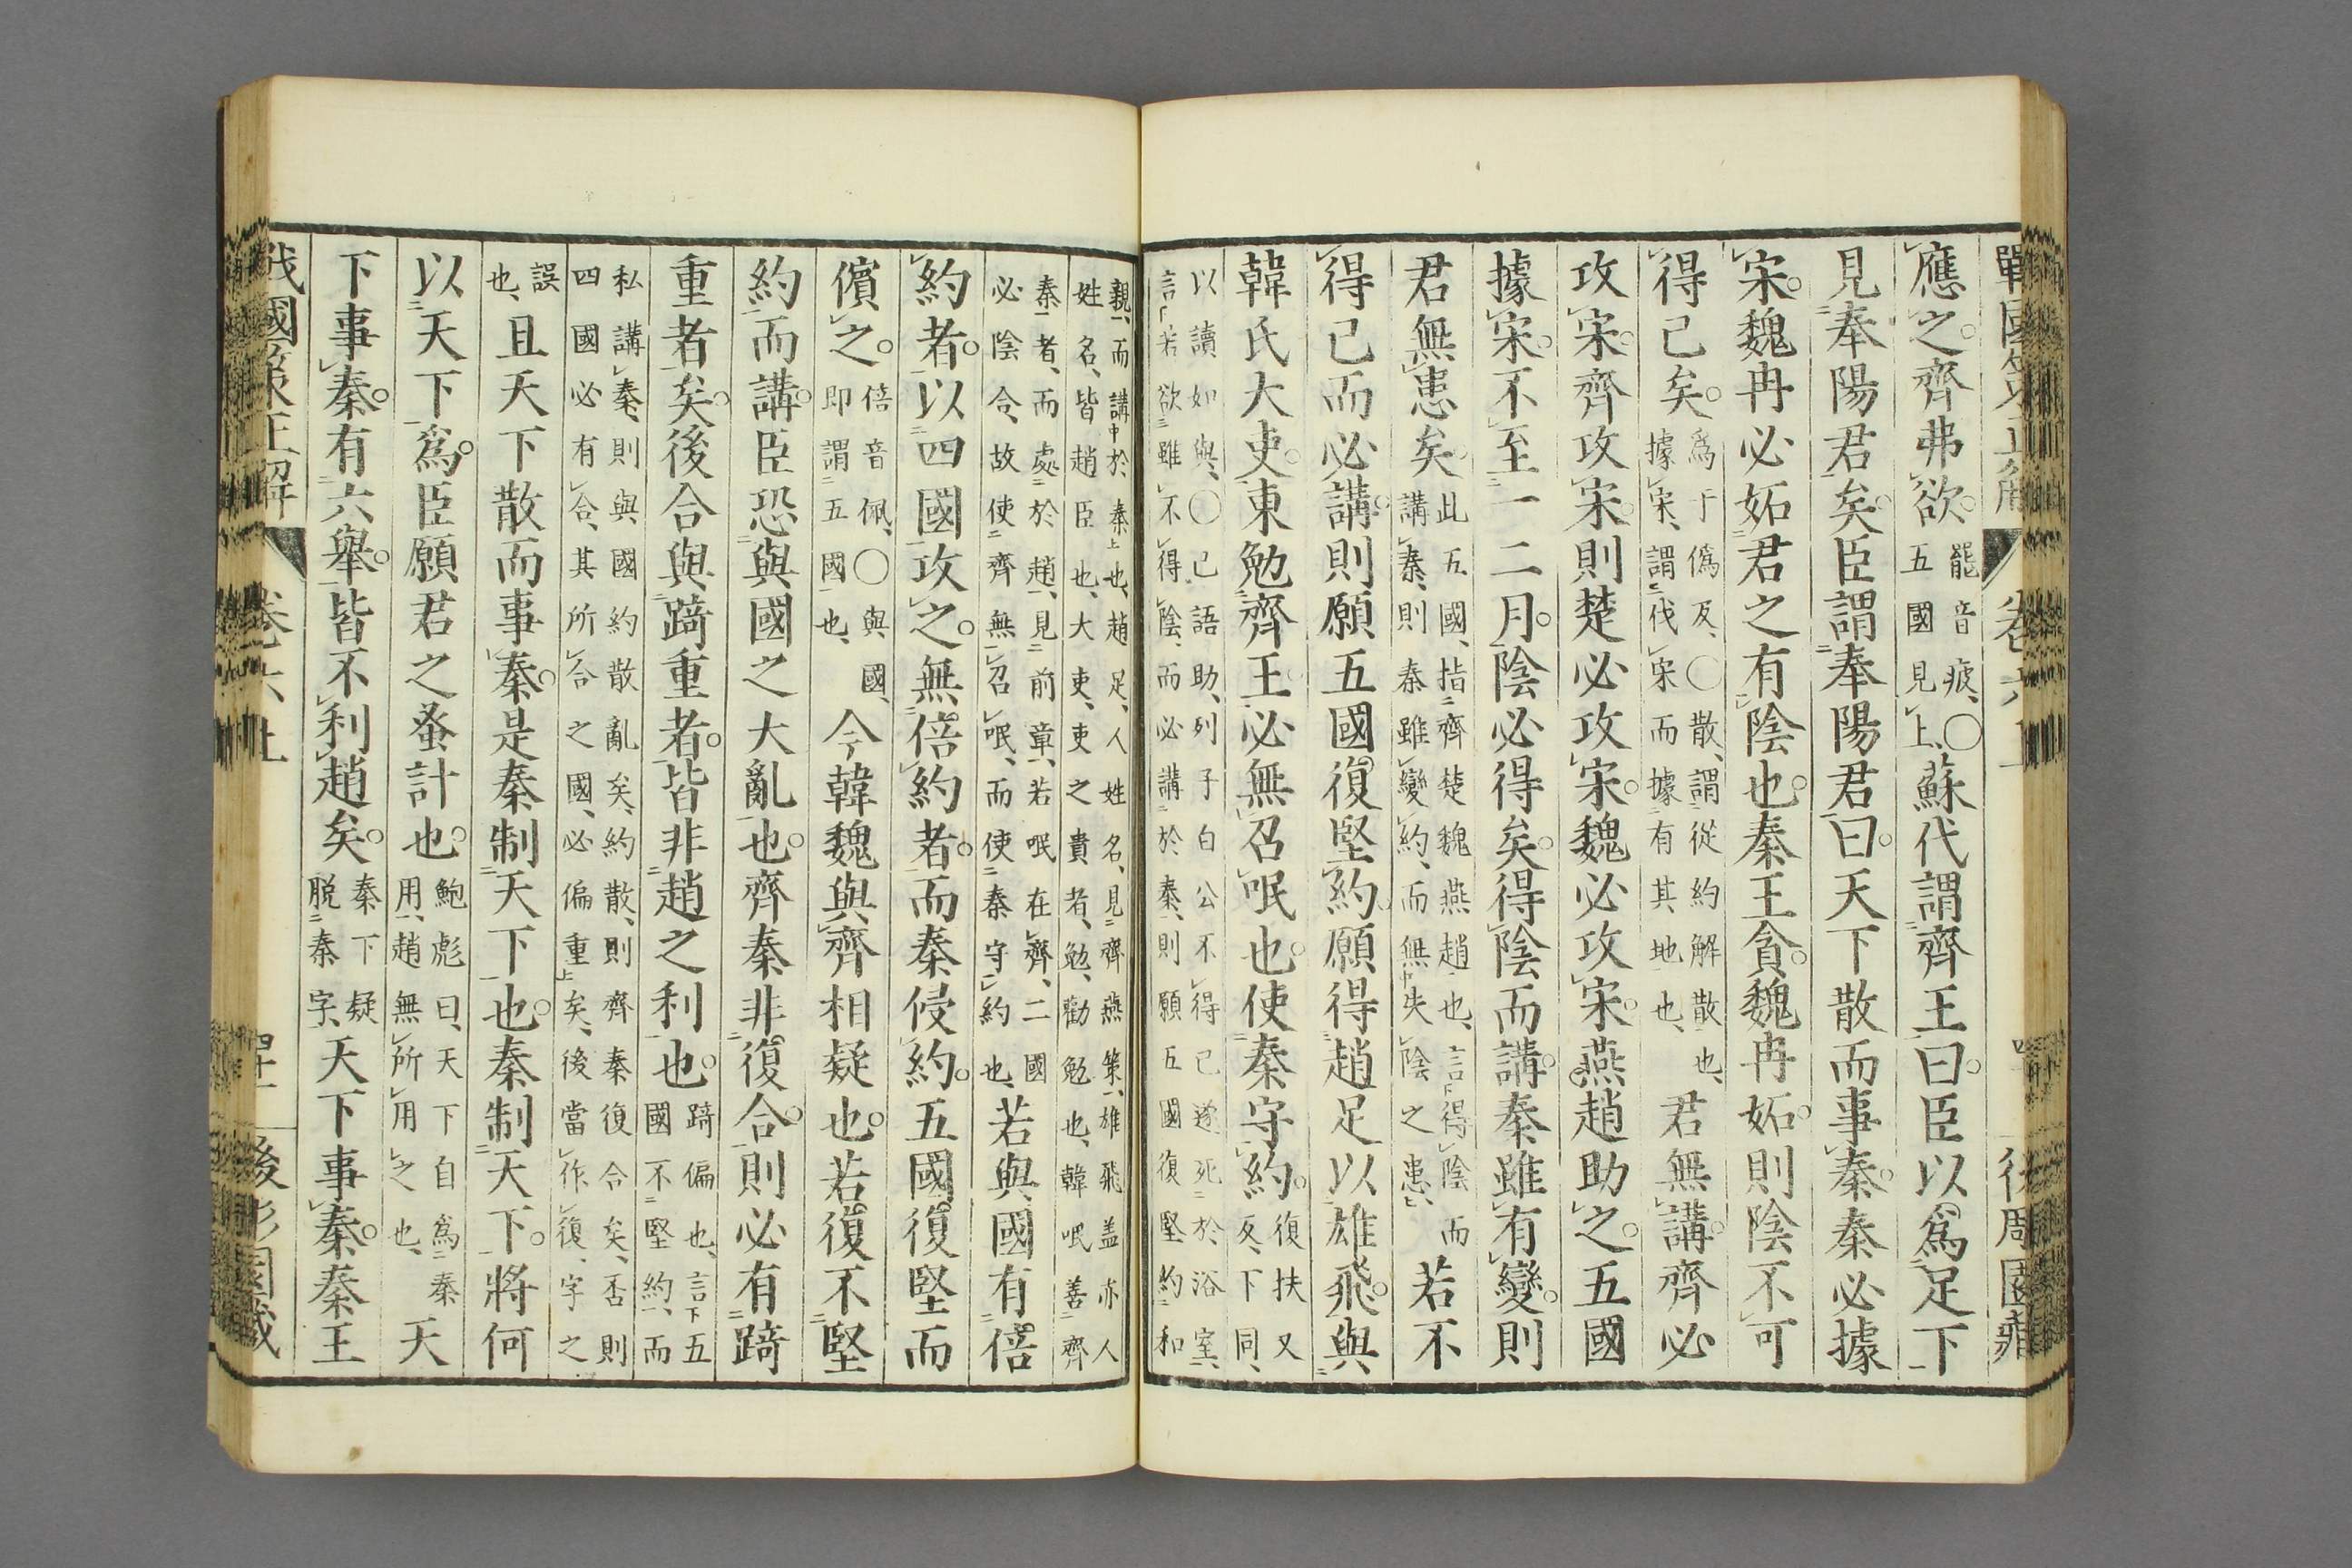 應之。齊弗欲。罷音疲、〇五國見上、蘇代謂齊王曰。臣以爲足下
見奉陽君矣。臣謂奉陽君曰。天下散而事秦。秦必據
宋。魏冉必妬君之有陰也。秦王貪。魏冉妬。則陰不可
得已矣。爲于僞反、〇散、謂從約解散也、據宋、謂伐宋而據有其地也、君無講。齊必
攻宋。齊攻宋。則楚必攻宋。魏必攻宋。燕趙助之。五國
據宋。不至一二月。陰必得矣。得陰而講。秦雖有變。則
君無患矣。此五國、指齊楚魏燕趙也、言得陰而講秦、則秦雖變約、而無失陰之患、若不
得已而必講。則願五國復堅約。願得趙足以雄飛。與
韓氏大吏。東勉齊王。必無召呡也。使秦守約。復扶又反、下同、
以讀如與、〇已語助、列子白公不得已遂死於浴室、言若欲雖不得陰、而必講於秦、則願五國復堅約和
親、而講於秦也、趙足、人姓名、見齊燕策、雄飛盖亦人姓名、皆趙臣也、大吏、吏之貴者、勉、勸勉也、韓呡善齊
秦者、而處於趙、見前章、若呡在齊、二國必陰合、故使齊無召呡、而使秦守約也、若與國有倍
約者。以四國攻之。無倍約者。而秦侵約。五國復堅而
儐之。倍音佩、〇與國、即謂五國也、今韓魏與齊相疑也。若復不堅
約而講。臣恐與國之大亂也。齊秦非復合。則必有踦
重者矣。後合與踦重者。皆非趙之利也。踦偏也、言五國不堅約、而
私講秦、則與國約散亂矣、約散、則齊秦復合矣、否則四國必有合、其所合之國、必偏重矣、後當作復、字之
誤也、且天下散而事秦。是秦制天下也。秦制天下。將何
以天下爲。臣願君之蚤計也。鮑彪曰、天下自爲秦用、趙無所用之也、天
下事秦。有六舉。皆不利趙矣。秦下疑脱秦字、天下事秦。秦王
戰國策正解
卷六上
後彫園藏